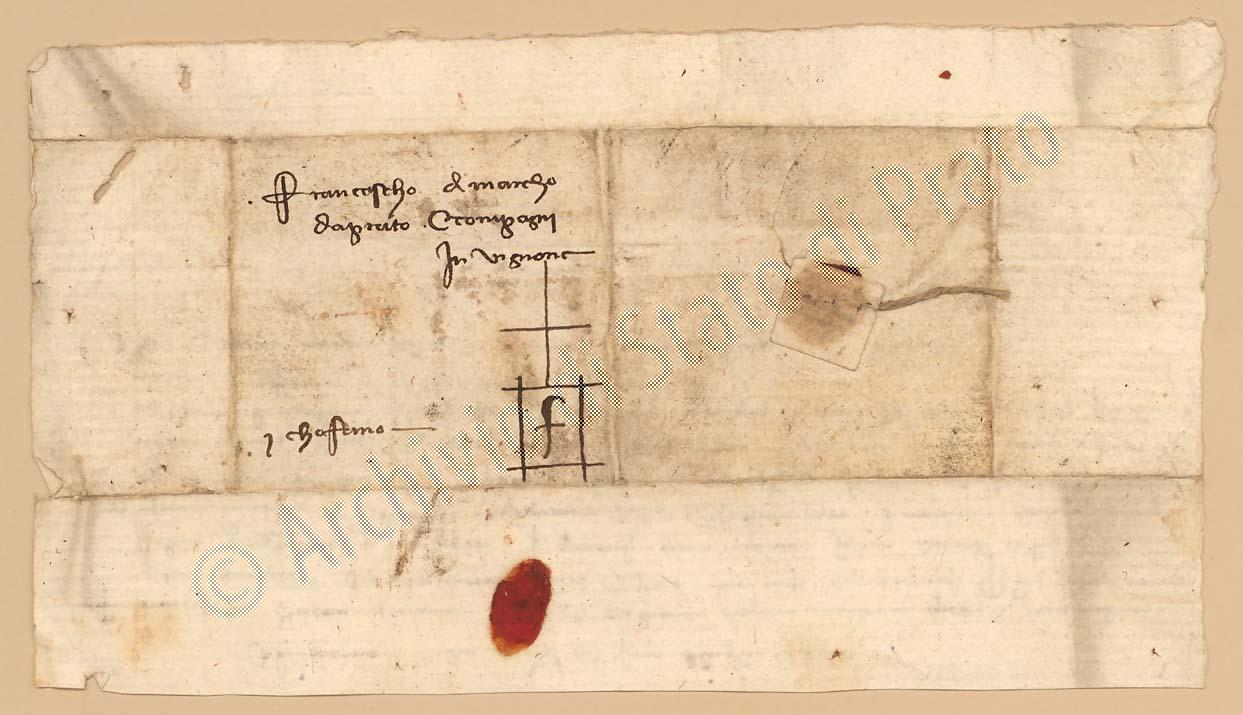 Francescho di marcho
da prato e compagni
In vignone
f
1 chofano
© Archivio di Stato di Prato